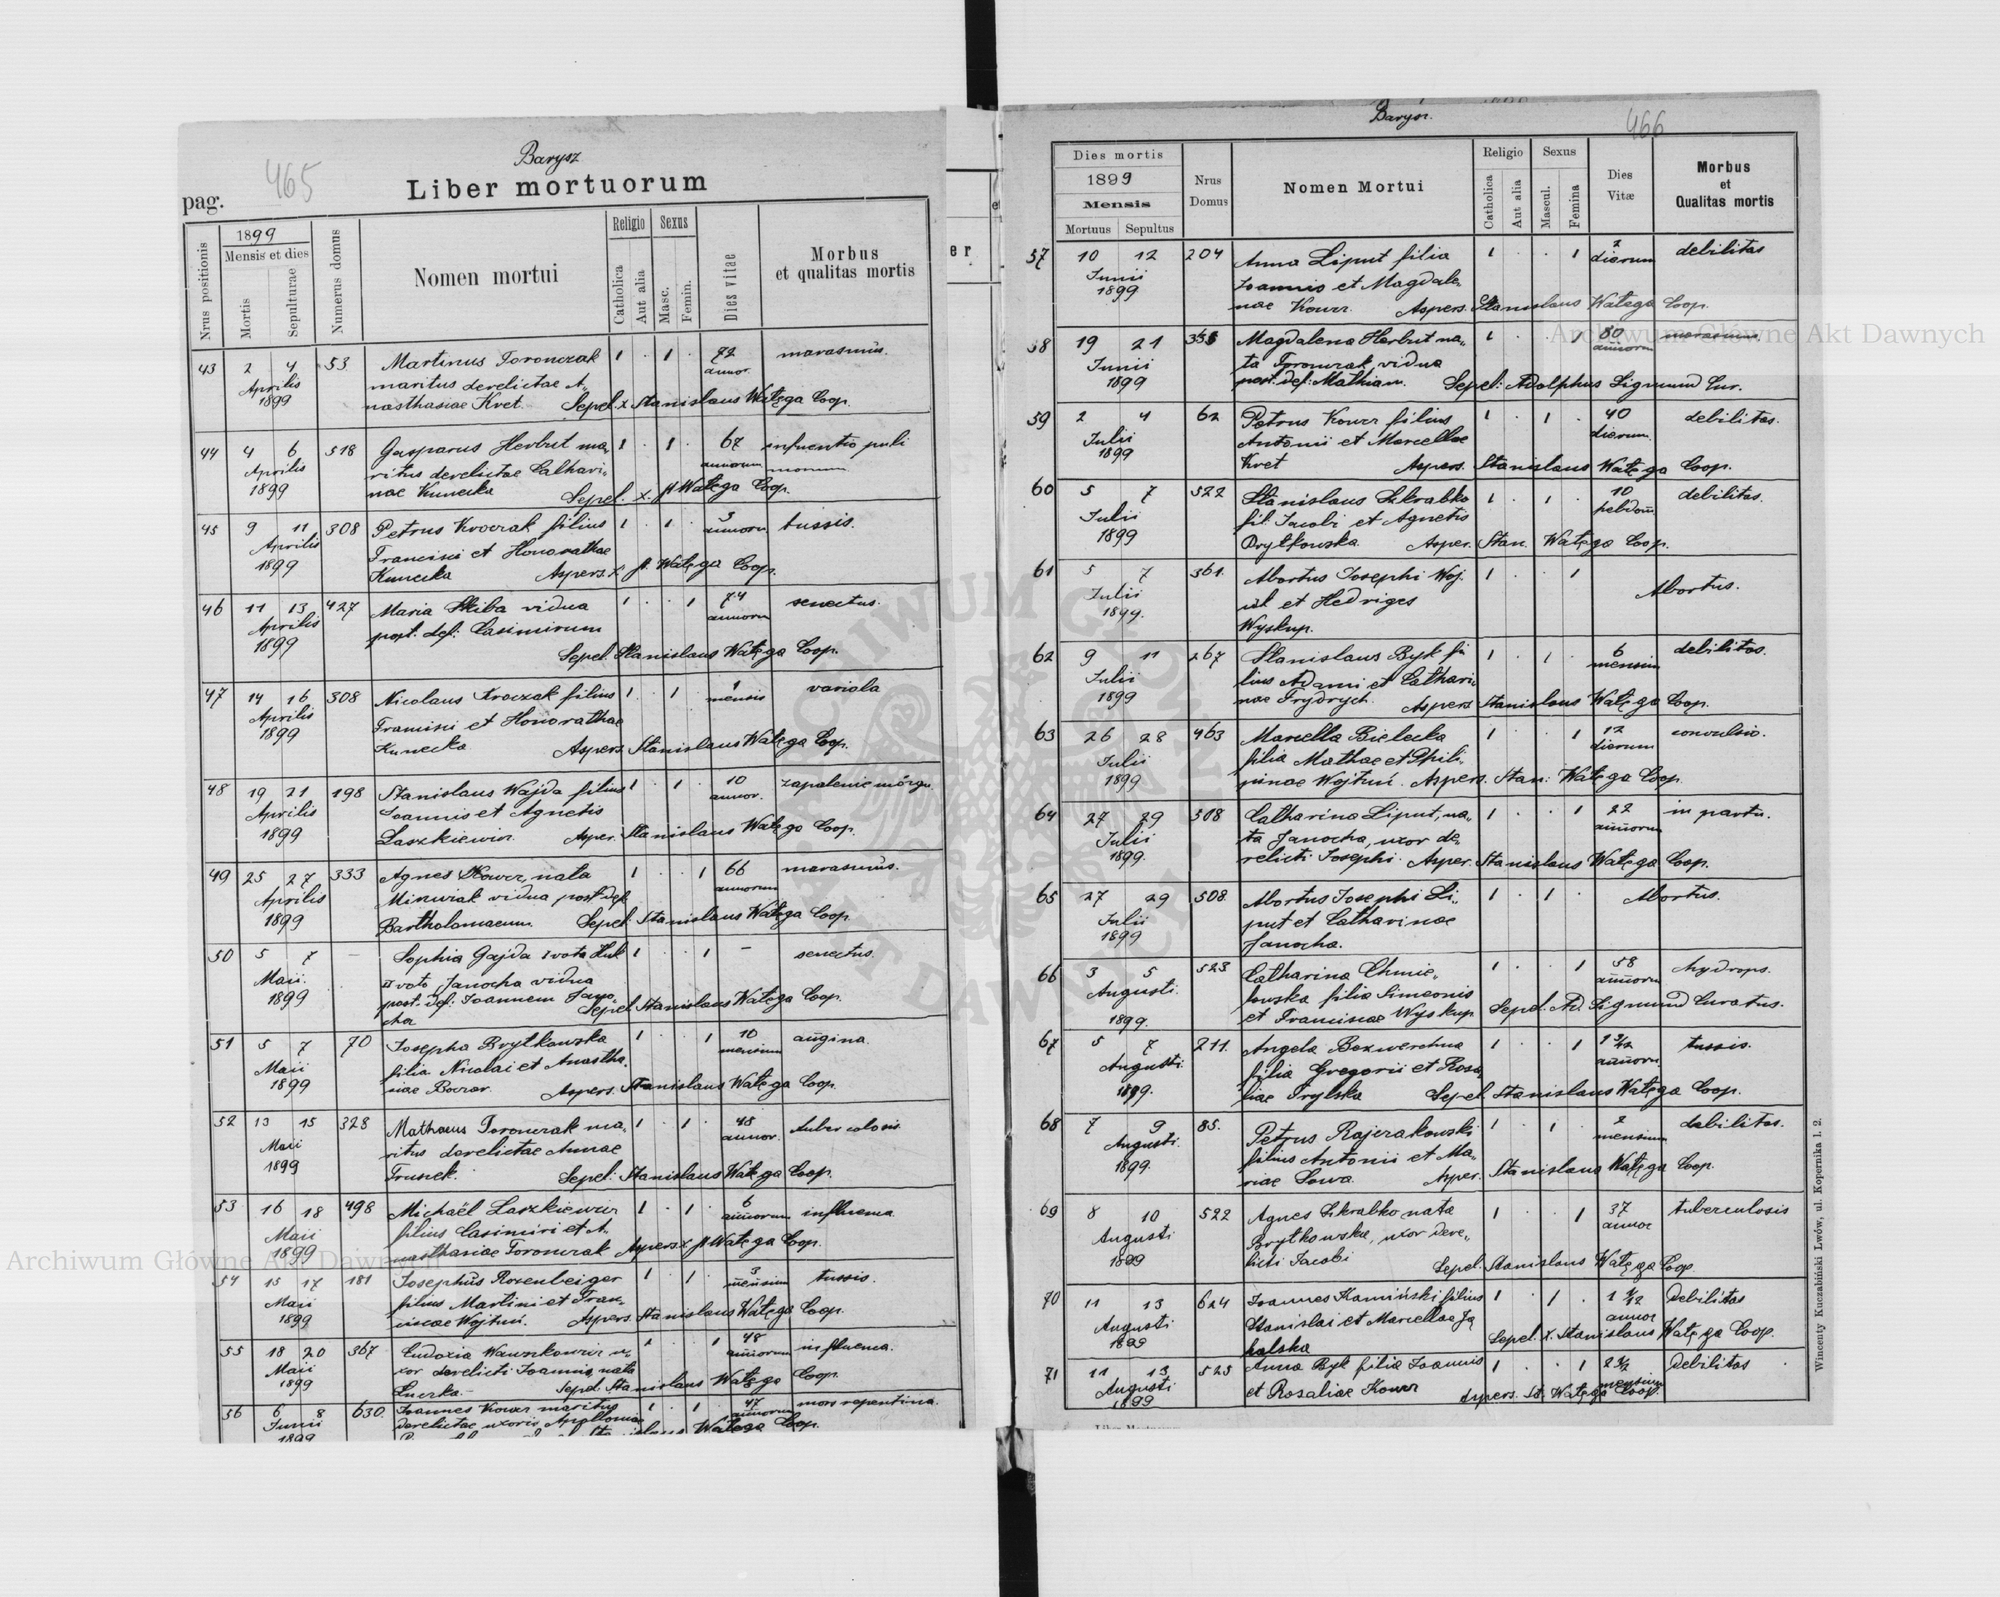 Barysz
465
pag.
Liber mortuorum
Nrus positionis
1899
Mensis et dies
Mortis
Sepulturae
Numerus domus
Nomen mortui
Religio
Catholica
Aut alia
Sexus
Masc.
Femin.
Dies vitae
Morbus
et qualitas mortis
43 2 4 53 Martinus Toronczak 1 . 1 . 72 marasmus.
Aprilis maritus derelictae A„ annor.
1899 nasthasiae Kret. Sepel. x Stanislaus Watęga Coop.
44 4 6 518 Gasparus Herbut ma„ 1 . 1 . 67
Aprilis ritus derelictae Cathari„ annorum
1899 nae Kunecka Sepel. x. St Watęga Coop.
45 9 11 308 Petrus Kroczak filius 1 . 1 . 3 tussis.
Aprilis Francisci et Honorathae annoru
1899 Kunecka Aspers. x. St. Watęga Coop.
46 11 13 427 Maria Skiba vidua 1 . . 1 74 senectus.
Aprilis post. def: Casimirum annorum
1899 Sepel. Stanislaus Watęga Coop.
47 14 16 308 Nicolaus Kroczak filius 1 . 1 . 1 variola
Aprilis Francisci et Honorathae mensis
1899 Kunecka Aspers. Stanislaus Watęga Coop.
48 19 21 198 Stanislaus Wajda filius 1 . 1 . 10 zapalenie mózgu
Aprilis Joannis et Agnetis annor.
1899 Laszkiewicz. Asper. Stanislaus Watęga Coop.
49 25 27 333 Agnes Kower, nata 1 . . 1 66 marasmus.
Aprilis vidua post def. annorum
1899 Bartholomaeum. Sepel. Stanislaus Watęga Coop.
50 5 7 — Sophia Gajda I voto Huk 1 . . 1 — senectus.
Maii. II voto Janocha vidua
1899 post. def: Joannem Jano„
cha Sepel. Stanislaus Watęga Coop.
51 5 7 70 Josepha Brytkowska 1 . . 1 10 angina.
Maii filia Nicolai et Anastha„ mensium
1899 siae Boczar. Aspers. Stanislaus Watęga Coop.
52 13 15 328 Mathaeus Toronczak ma„ 1 . 1 . 48 tuberculosis
Maii ritus derelictae Annae annor.
1899 Sepel: Stanislaus Watęga Coop.
53 16 18 498 Michaël Laszkiewicz 1 . 1 . 6 influenza
Maii filius Casimiri et A„ annorum
1899 nasthasiae Toronczak Aspers. x St Watęga Coop.
54 15 17 181 Josephus Rozenbeiger 1 . 1 . 3 tussis.
Maii filius Martini et Fran„ mensium
1899 ciscae Wojtuń. Aspers. Stanislaus Watęga Coop.
55 18 20 367 Eudoxia u„ 1 . . 1 48 influenza.
Maii xor derelicti Joannis, nata annorum
1899 Sepel. Stanislaus Watęga Coop.
56 6 8 630. Joannes Kower maritus 1 . 1 . 47 mors repentina.
Junii derelictae uxoris annorum
1899 Watęga Coop.
Barysz.
466
Dies mortis
1899
Mensis
Mortuus
Sepultus
Nrus
Domus
Nomen Mortui
Religio
Catholica
Aut alia
Sexus
Mascul.
Femina
Dies
Vitæ
Morbus
et
Qualitas mortis
57 10 12 204 Anna Liput filia 1 . . 1 2 debilitas
Junii Joannis et Magdale„ dierum
1899 nae Kower. Aspers. Stanislaus Watęga Coop.
58 19 21 Magdalena Herbut na„ 1 . . 1 80 marasmus.
Junii ta Toronczak, vidua annorum
1899 post. def: Mathiam. Sepel: Adolphus Sigmund Cur.
59 2 4 62 Petrus Kower filius 1 . 1 . 40 debilitas.
Julii Antonii et Marcellae dierum.
1899 Kret Aspers. Stanislaus Watęga Coop.
60 5 7 522 Stanislaus Szkrabko 1 . 1 . 10 debilitas.
Julii fil. Jacobi et Agnetis hebdom.
1899 Brytkowska. Asper. Stan. Watęga Coop.
61 5 7 361. Abortus Josephi Woj„ 1 . . 1 Abortus.
Julii et Hedviges
1899. Wyskup.
62 9 11 267 Stanislaus Byk fi„ 1 . 1 . 6 debilitas.
Julii lius Adami et Cathari„ mensium
1899 nae Frydrych. Aspers. Stanislaus Watęga Coop.
63 26 28 463 Marcella Bielecka 1 . . 1 12 convulsio.
Julii filia Mathae et Phili„ dierum
1899 pinae Wojtuń. Aspers. Stan: Watęga Coop.
64 27 29 508 Catharina Liput, na„ 1 . . 1 22 in partu.
Julii ta Janocha, uxor de„ annorum
1899. relicti Josephi. Asper. Stanislaus Watęga Coop.
65 27 29 508. Abortus Josephi Li„ 1 . 1 . Abortus.
Julii put et Catharinae
1899 Janocha.
66 3 5 523 Catharina Chmie„ 1 . . 1 58 hydrops.
Augusti. lowska filia Simeonis annorum
1899. et Franciscae Wyskup Sepel. Ad. Sigmund Curatus.
67 5 7 211. Angela Bezwerchna 1 . . 1 annoru tussis.
Augusti filia Gregorii et Rosa„
1899. liae Trylska Sepel. Stanislaus Watęga Coop.
68 7 9 85. Petrus Rajzrakowski 1 . 1 . 2 debilitas.
Augusti. filius Antonii et Ma„ mensium
1899. riae Sowa. Asper. Stanislaus Watęga Coop.
69 8 10 522 Agnes Szkrabko nata 1 . . 1 37 tuberculosis
Augusti Brytkowska, uxor dere„ annor
1899 licti Jacobi Sepel. Stanislaus Watęga Coop.
70 11 13 624 Joannes Kamiński filius 1 . 1 . annor Debilitas
Augusti Stanislai et Marcellae Ja
1899 kalska Sepel. x. Stanislaus Watęga Coop.
71 11 13 525 Anna Byk filia Joannis 1 . . 1 mensium Debilitas
Augusti et Rosaliae Kower Aspers. St. Watęga Coop.
1899
Wincenty Kuczabiński Lwów, ul. Kopernika l. 2.
Archiwum Główne Akt Dawnych
Archiwum Główne Akt Dawnych
ARCHIWUM GŁÓWNE AKT DAWNYCH